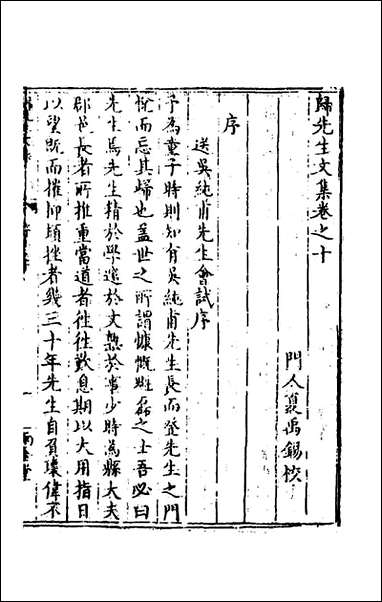 歸先生文集卷之十
門人禹錫校
序
送吳純甫先生會試序
予為童子時則知有吳純甫先生長而登先生之門
悅而忘其歸也蓋世之所謂慷慨魁磊之士吾必曰
先生焉先生精於學邃於文熟於事少時為縣大夫
郡邑長者所推重當道者往往歎息期以大用指日
以望既而摧抑頓挫者幾三十年先生自負瓌偉不